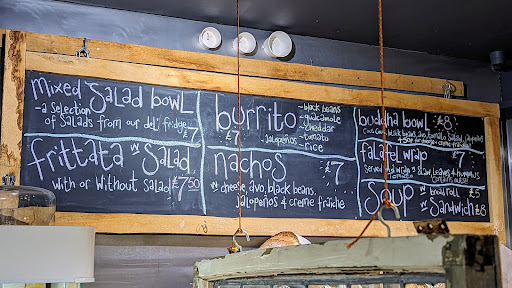 mixed Salad bowl
- a selection
of Salads from our deli fridge £7
frittata w Salad
with or without Salad £7.50
burrito £7
- black beans
- guacamole
- cheddar
- tomato
- jalapeños
- rice
nachos £7
w cheese, avo, black beans,
jalapeños & creme fraîche
buddha bowl £8
Cous Cous, black beans, avo, tomato, Salad,
falafel wrap £7
Served w slaw, leaves & hummus
Soup w bread roll £5
w Sandwich £8